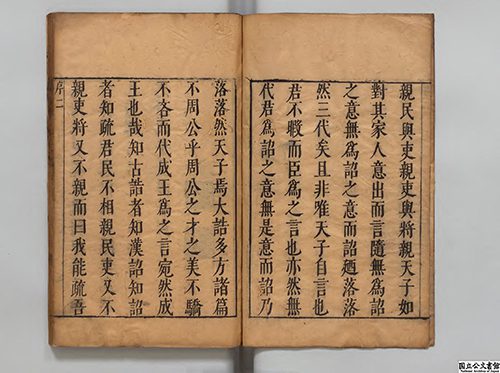 親民與吏親吏與將親天子如
對其家人意出而言隨無爲詔
之意無爲詔之意而詔廼落落
然三代矣且非唯天子自言也
君不暇而臣爲之言也亦然無
代君爲詔之意無是意而詔乃
落落然天子焉大誥多方諸篇
不周公乎周公之才之美不驕
不吝而代成王爲之言宛然成
王也哉知古誥者知漢詔知詔
者知疏君民不相親民吏又不
親吏將又不親而曰我能疏吾
序二
国立公文書館
National Archives of Japan